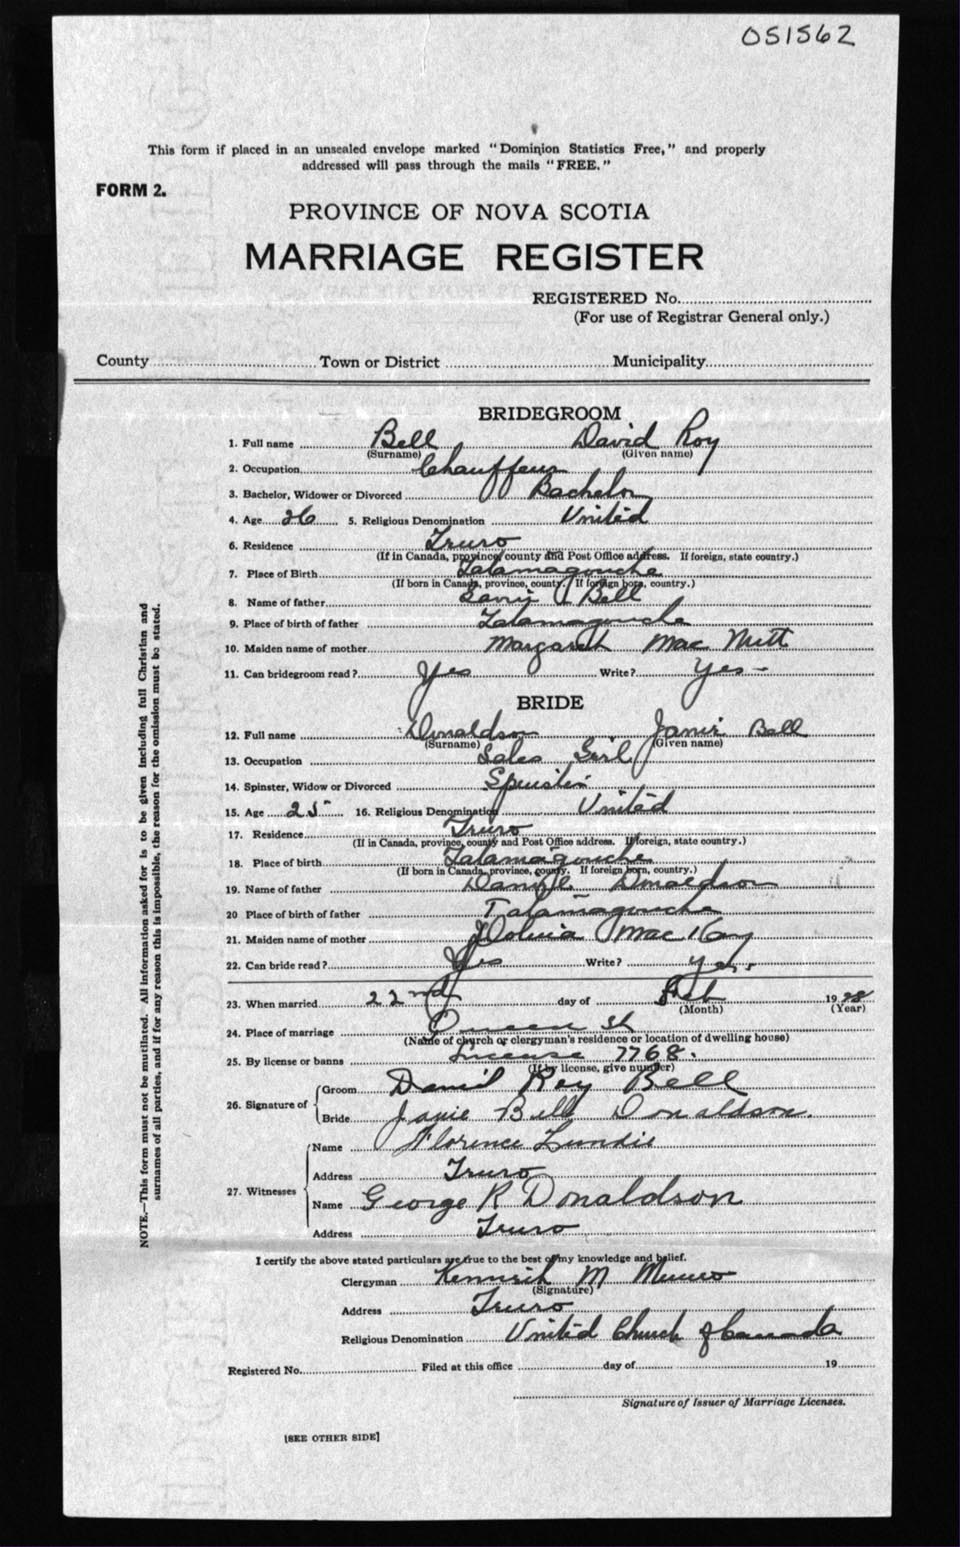 051562
This form if placed in an unsealed envelope marked "Dominion Statistics Free," and properly
addressed will pass through the mails "FREE."
FORM 2.
PROVINCE OF NOVA SCOTIA
MARRIAGE REGISTER
REGISTERED No.
(For use of Registrar General only.)
County Town or District Municipality
BRIDEGROOM
1. Full name Bell David Roy
(Surname) (Given name)
2. Occupation Chauffeur
3. Bachelor, Widower or Divorced Bachelor
4. Age 26 5. Religious Denomination United
6. Residence Truro
(If in Canada, province, county and Post Office address. If foreign, state country.)
7. Place of Birth Tatamagouche
(If born in Canada, province, county. If foreign born, country.)
8. Name of father Bell
9. Place of birth of father Tatamagouche
10. Maiden name of mother Margaret Mac Nutt
11. Can bridegroom read? Yes Write? Yes-
BRIDE
12. Full name Donaldson Janie Bell
(Surname) (Given name)
13. Occupation Sales Girl
14. Spinster, Widow or Divorced Spinster
15. Age 25 16. Religious Denomination United
17. Residence Truro
(If in Canada, province, county and Post Office address. If foreign, state country.)
18. Place of birth Tatamagouche
(If born in Canada, province, county. If foreign born, country.)
19. Name of father Donaldson
20 Place of birth of father Tatamagouche
21. Maiden name of mother Mac Kay
22. Can bride read? Yes Write? Yes.
23. When married 22nd day of 1928
(Month) (Year)
24. Place of marriage Queen St
(Name of church or clergyman's residence or location of dwelling house)
25. By license or banns License 7768.
(If by license, give number)
26. Signature of Groom David Roy Bell
Bride Janie Bell Donaldson.
27. Witnesses Name Florence Lundie
Address Truro
Name George R Donaldson
Address Truro
I certify the above stated particulars are true to the best of my knowledge and belief.
Clergyman Kenneth M Munro
(Signature)
Address Truro
Religious Denomination United Church of Canada
Registered No. Filed at this office day of 19
Signature of Issuer of Marriage Licenses.
[SEE OTHER SIDE]
NOTE.—This form must not be mutilated. All information asked for is to be given including full Christian and
surnames of all parties, and if for any reason this is impossible, the reason for the omission must be stated.